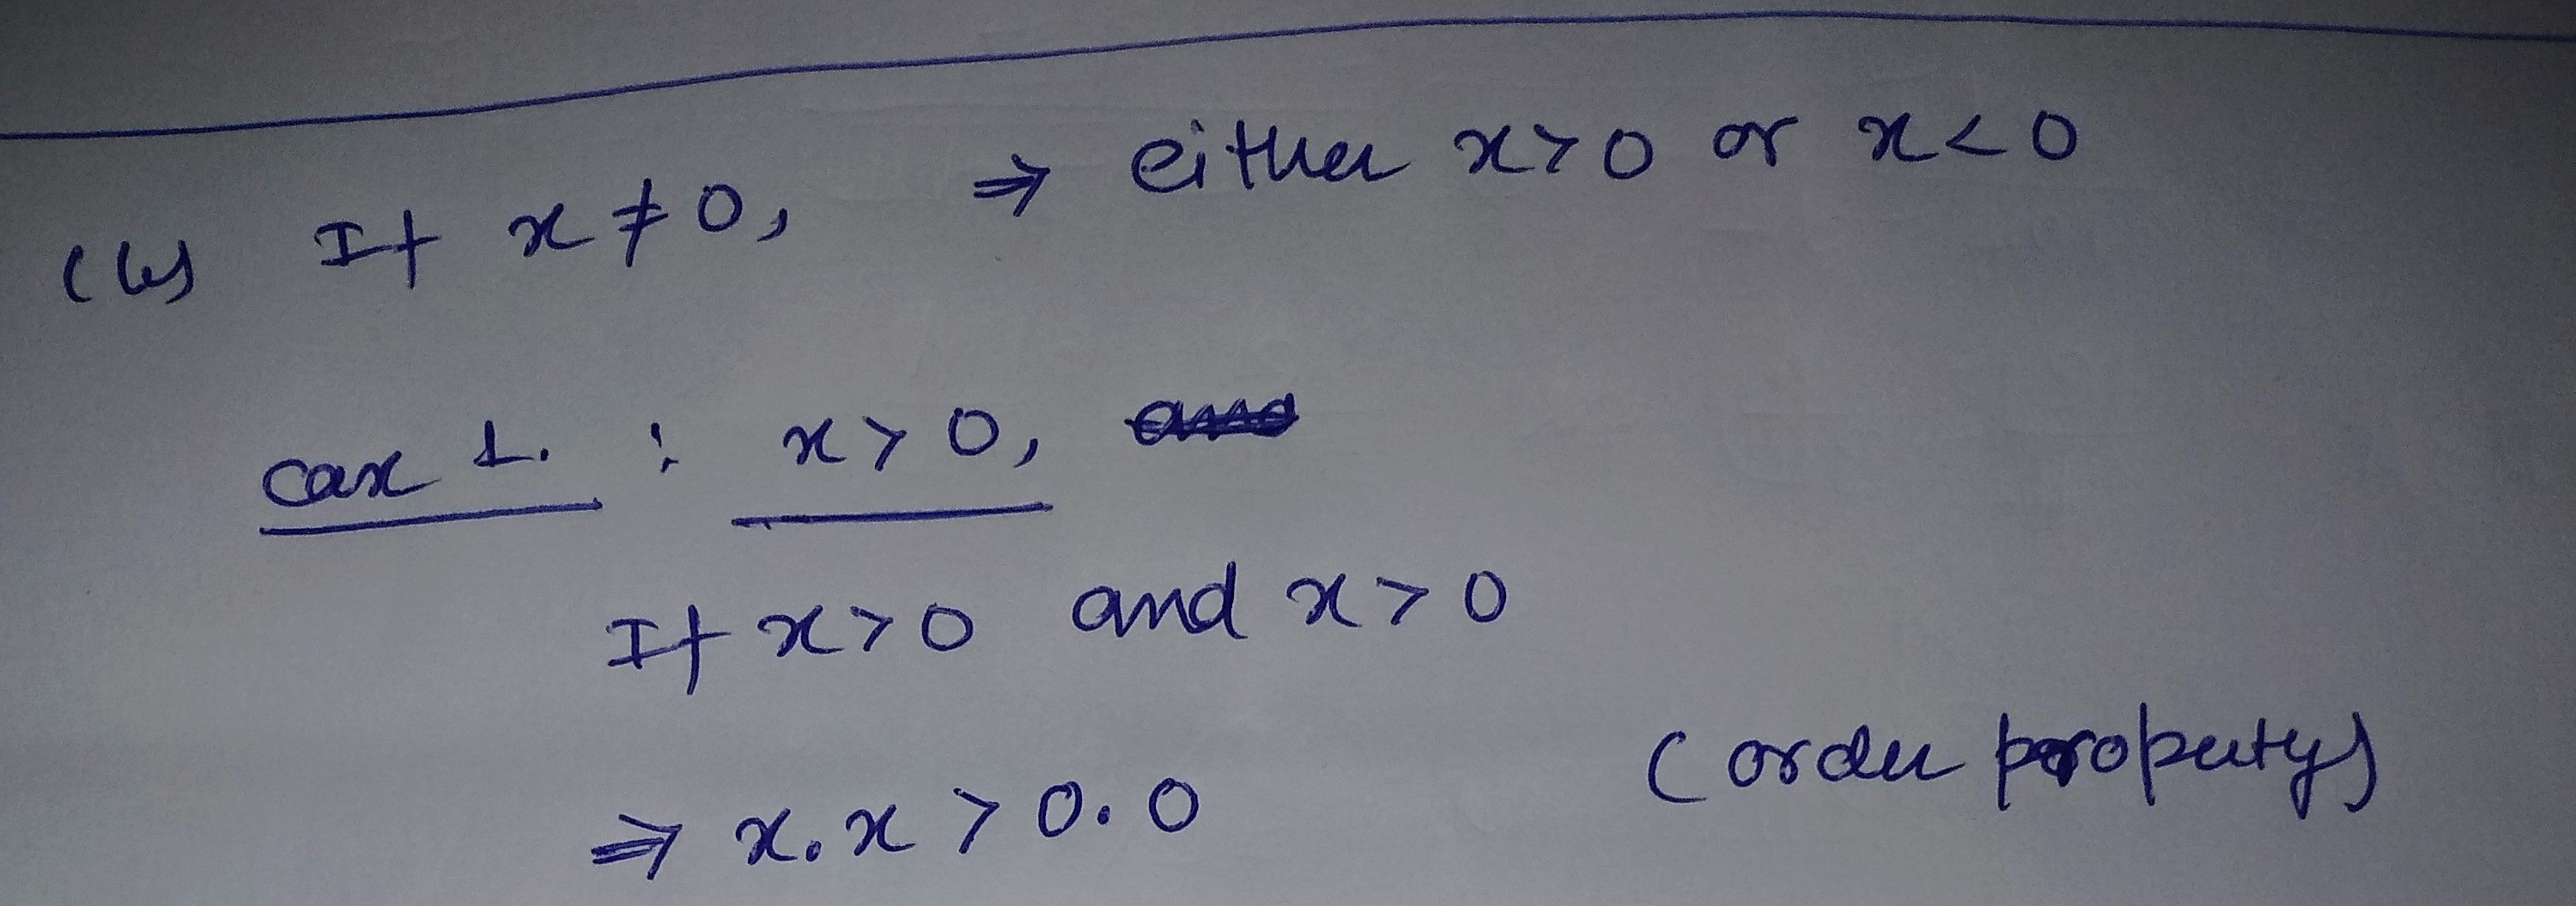 (b) If x ≠ 0, ⇒ either x > 0 or x < 0
case 1. : x > 0,
If x > 0 and x > 0
⇒ x.x > 0.0 (order property)